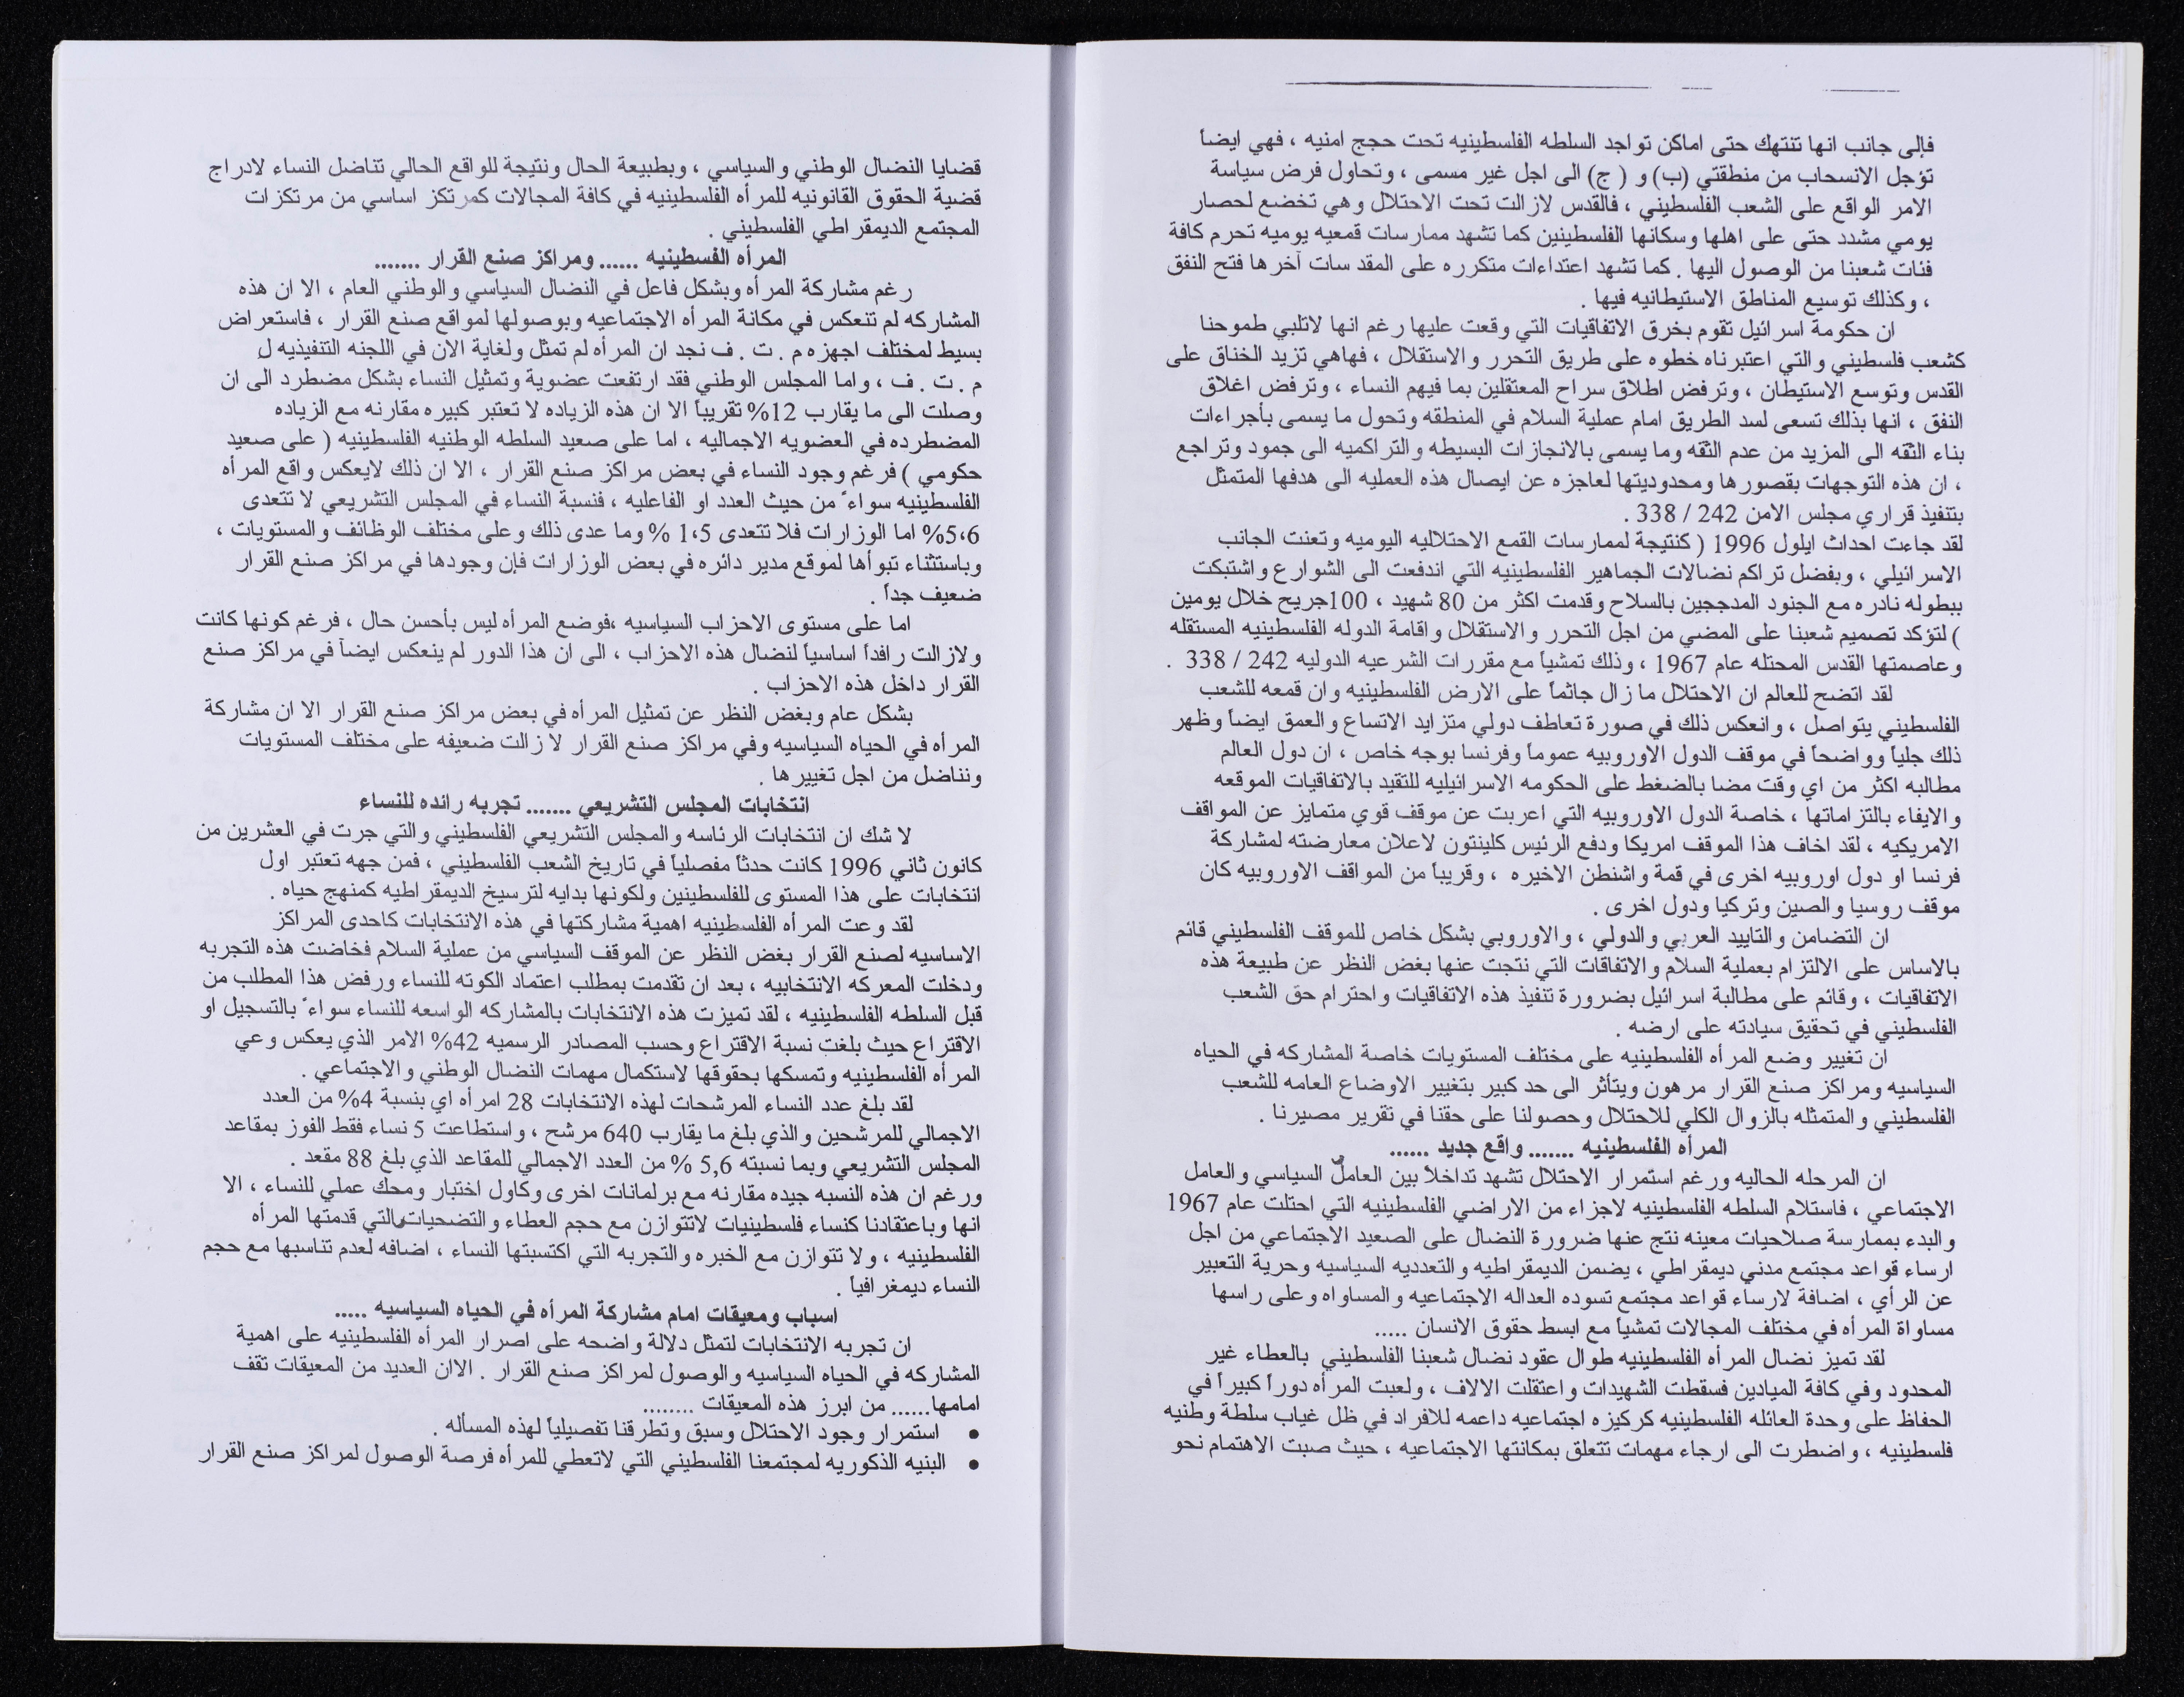 فإلى جانب انها تنتهك حتى اماكن تواجد السلطه الفلسطينيه تحت حجج امنيه ، فهي ايضاً
تؤجل الانسحاب من منطقتي (ب) و ( ج) الى اجل غير مسمى ، وتحاول فرض سياسة
الامر الواقع على الشعب الفلسطيني ، فالقدس لازالت تحت الاحتلال وهي تخضع لحصار
يومي مشدد حتى على اهلها وسكانها الفلسطينين كما تشهد ممارسات قمعيه يوميه تحرم كافة
فئات شعبنا من الوصول اليها . كما تشهد اعتداءات متكرره على المقد سات آخرها فتح النفق
، وكذلك توسيع المناطق الاستيطانيه فيها .
ان حكومة اسرائيل تقوم بخرق الاتفاقيات التي وقعت عليها رغم انها لاتلبي طموحنا
كشعب فلسطيني والتي اعتبرناه خطوه على طريق التحرر والاستقلال ، فهاهي تزيد الخناق على
القدس وتوسع الاستيطان ، وترفض اطلاق سراح المعتقلين بما فيهم النساء ، وترفض اغلاق
النفق ، انها بذلك تسعى لسد الطريق امام عملية السلام في المنطقه وتحول ما يسمى بأجراءات
بناء الثقه الى المزيد من عدم الثقه وما يسمى بالانجازات البسيطه والتراكميه الى جمود وتراجع
، ان هذه التوجهات بقصورها ومحدوديتها لعاجزه عن ايصال هذه العمليه الى هدفها المتمثل
بتنفيذ قراري مجلس الامن 242 / 338 .
لقد جاءت احداث ايلول 1996 ( كنتيجة لممارسات القمع الاحتلاليه اليوميه وتعنت الجانب
الاسرائيلي ، وبفضل تراكم نضالات الجماهير الفلسطينيه التي اندفعت الى الشوارع واشتبكت
ببطوله نادره مع الجنود المدججين بالسلاح وقدمت اكثر من 80 شهيد ، 100جريح خلال يومين
) لتؤكد تصميم شعبنا على المضي من اجل التحرر والاستقلال واقامة الدوله الفلسطينيه المستقله
وعاصمتها القدس المحتله عام 1967 ، وذلك تمشياً مع مقررات الشرعيه الدوليه 242 / 338 .
لقد اتضح للعالم ان الاحتلال ما زال جاثماً على الارض الفلسطينيه وان قمعه للشعب
الفلسطيني يتواصل ، وانعكس ذلك في صورة تعاطف دولي متزايد الاتساع والعمق ايضاً وظهر
ذلك جلياً وواضحاً في موقف الدول الاوروبيه عموماً وفرنسا بوجه خاص ، ان دول العالم
مطالبه اكثر من اي وقت مضا بالضغط على الحكومه الاسرائيليه للتقيد بالاتفاقيات الموقعه
والايفاء بالتزاماتها ، خاصة الدول الاوروبيه التي اعربت عن موقف قوي متمايز عن المواقف
الامريكيه ، لقد اخاف هذا الموقف امريكا ودفع الرئيس كلينتون لاعلان معارضته لمشاركة
فرنسا او دول اوروبيه اخرى في قمة واشنطن الاخيره ، وقريباً من المواقف الاوروبيه كان
موقف روسيا والصين وتركيا ودول اخرى .
ان التضامن والتاييد العربي والدولي ، والاوروبي بشكل خاص للموقف الفلسطيني قائم
بالاساس على الالتزام بعملية السلام والاتفاقات التي نتجت عنها بغض النظر عن طبيعة هذه
الاتفاقيات ، وقائم على مطالبة اسرائيل بضرورة تنفيذ هذه الاتفاقيات واحترام حق الشعب
الفلسطيني في تحقيق سيادته على ارضه .
ان تغيير وضع المرأه الفلسطينيه على مختلف المستويات خاصة المشاركه في الحياه
السياسيه ومراكز صنع القرار مرهون ويتأثر الى حد كبير بتغيير الاوضاع العامه للشعب
الفلسطيني والمتمثله بالزوال الكلي للاحتلال وحصولنا على حقنا في تقرير مصيرنا .
المرأه الفلسطينيه ....... واقع جديد ......
ان المرحله الحاليه ورغم استمرار الاحتلال تشهد تداخلاً بين العامل السياسي والعامل
الاجتماعي ، فاستلام السلطه الفلسطينيه لاجزاء من الاراضي الفلسطينيه التي احتلت عام 1967
والبدء بممارسة صلاحيات معينه نتج عنها ضرورة النضال على الصعيد الاجتماعي من اجل
ارساء قواعد مجتمع مدني ديمقراطي ، يضمن الديمقراطيه والتعدديه السياسيه وحرية التعبير
عن الرأي ، اضافة لارساء قواعد مجتمع تسوده العداله الاجتماعيه والمساواه وعلى راسها
مساواة المرأه في مختلف المجالات تمشياً مع ابسط حقوق الانسان .....
لقد تميز نضال المرأه الفلسطينيه طوال عقود نضال شعبنا الفلسطيني بالعطاء غير
المحدود وفي كافة الميادين فسقطت الشهيدات واعتقلت الالاف ، ولعبت المرأه دوراً كبيراً في
الحفاظ على وحدة العائله الفلسطينيه كركيزه اجتماعيه داعمه للافراد في ظل غياب سلطة وطنيه
فلسطينيه ، واضطرت الى ارجاء مهمات تتعلق بمكانتها الاجتماعيه ، حيث صبت الاهتمام نحو
قضايا النضال الوطني والسياسي ، وبطبيعة الحال ونتيجة للواقع الحالي تناضل النساء لادراج
قضية الحقوق القانونيه للمرأه الفلسطينيه في كافة المجالات كمرتكز اساسي من مرتكزات
المجتمع الديمقراطي الفلسطيني .
المرأه الفسطينيه ...... ومراكز صنع القرار .......
رغم مشاركة المرأه وبشكل فاعل في النضال السياسي والوطني العام ، الا ان هذه
المشاركه لم تنعكس في مكانة المرأه الاجتماعيه وبوصولها لمواقع صنع القرار ، فاستعراض
بسيط لمختلف اجهزه م . ت . ف نجد ان المرأه لم تمثل ولغاية الان في اللجنه التنفيذيه ل
م . ت . ف ، واما المجلس الوطني فقد ارتفعت عضوية وتمثيل النساء بشكل مضطرد الى ان
وصلت الى ما يقارب 12% تقريباً الا ان هذه الزياده لا تعتبر كبيره مقارنه مع الزياده
المضطرده في العضويه الاجماليه ، اما على صعيد السلطه الوطنيه الفلسطينيه ( على صعيد
حكومي ) فرغم وجود النساء في بعض مراكز صنع القرار ، الا ان ذلك لايعكس واقع المرأه
الفلسطينيه سواءً من حيث العدد او الفاعليه ، فنسبة النساء في المجلس التشريعي لا تتعدى
5،6% اما الوزارات فلا تتعدى 1،5 % وما عدى ذلك وعلى مختلف الوظائف والمستويات ،
وباستثناء تبوأها لموقع مدير دائره في بعض الوزارات فإن وجودها في مراكز صنع القرار
ضعيف جداً .
اما على مستوى الاحزاب السياسيه ،فوضع المرأه ليس بأحسن حال ، فرغم كونها كانت
ولازالت رافداً اساسياً لنضال هذه الاحزاب ، الى ان هذا الدور لم ينعكس ايضاً في مراكز صنع
القرار داخل هذه الاحزاب .
بشكل عام وبغض النظر عن تمثيل المرأه في بعض مراكز صنع القرار الا ان مشاركة
المرأه في الحياه السياسيه وفي مراكز صنع القرار لا زالت ضعيفه على مختلف المستويات
ونناضل من اجل تغييرها .
انتخابات المجلس التشريعي ....... تجربه رائده للنساء
لا شك ان انتخابات الرئاسه والمجلس التشريعي الفلسطيني والتي جرت في العشرين من
كانون ثاني 1996 كانت حدثاً مفصلياً في تاريخ الشعب الفلسطيني ، فمن جهه تعتبر اول
انتخابات على هذا المستوى للفلسطينين ولكونها بدايه لترسيخ الديمقراطيه كمنهج حياه .
لقد وعت المرأه الفلسطينيه اهمية مشاركتها في هذه الانتخابات كاحدى المراكز
الاساسيه لصنع القرار بغض النظر عن الموقف السياسي من عملية السلام فخاضت هذه التجربه
ودخلت المعركه الانتخابيه ، بعد ان تقدمت بمطلب اعتماد الكوته للنساء ورفض هذا المطلب من
قبل السلطه الفلسطينيه ، لقد تميزت هذه الانتخابات بالمشاركه الواسعه للنساء سواءً بالتسجيل او
الاقتراع حيث بلغت نسبة الاقتراع وحسب المصادر الرسميه 42% الامر الذي يعكس وعي
المرأه الفلسطينيه وتمسكها بحقوقها لاستكمال مهمات النضال الوطني والاجتماعي .
لقد بلغ عدد النساء المرشحات لهذه الانتخابات 28 امرأه اي بنسبة 4% من العدد
الاجمالي للمرشحين والذي بلغ ما يقارب 640 مرشح ، واستطاعت 5 نساء فقط الفوز بمقاعد
المجلس التشريعي وبما نسبته 5,6 % من العدد الاجمالي للمقاعد الذي بلغ 88 مقعد .
ورغم ان هذه النسبه جيده مقارنه مع برلمانات اخرى وكاول اختبار ومحك عملي للنساء ، الا
انها وباعتقادنا كنساء فلسطينيات لاتتوازن مع حجم العطاء والتضحيات والتي قدمتها المرأه
الفلسطينيه ، ولا تتوازن مع الخبره والتجربه التي اكتسبتها النساء ، اضافه لعدم تناسبها مع حجم
النساء ديمغرافياً .
اسباب ومعيقات امام مشاركة المرأه في الحياه السياسيه .....
ان تجربه الانتخابات لتمثل دلالة واضحه على اصرار المرأه الفلسطينيه على اهمية
المشاركه في الحياه السياسيه والوصول لمراكز صنع القرار . الاان العديد من المعيقات تقف
امامها...... من ابرز هذه المعيقات ........
• استمرار وجود الاحتلال وسبق وتطرقنا تفصيلياً لهذه المسأله .
• البنيه الذكوريه لمجتمعنا الفلسطيني التي لاتعطي للمرأه فرصة الوصول لمراكز صنع القرار